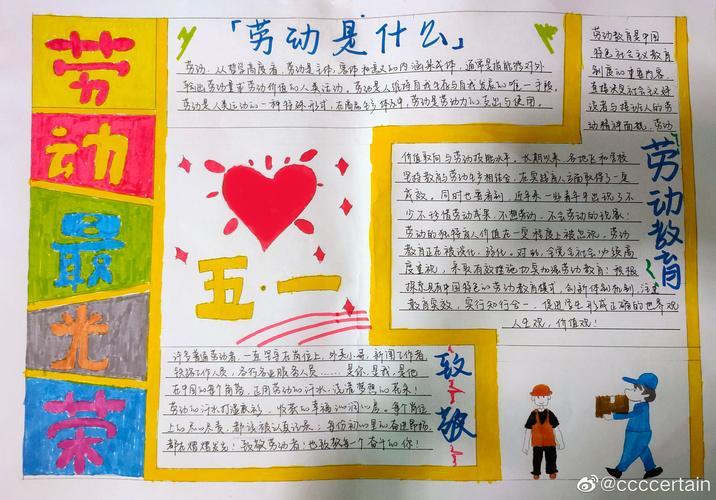 劳
动
最
光
荣
「劳动是什么」
劳动,从哲学高度看,劳动是主体,客体和意义的内涵集成体,通常是指能够对外
输出劳动量或劳动价值的人类运动。劳动是人维持自我生存与自我发展的唯一手段。
劳动是人类运动的一种特殊形式,在商品生产体系中,劳动是劳动力的支出与使用。
五·一
劳动教育是中国
特色社会主义教育
制度的重要内容,
直接决定社会主义建
设者与接班人的劳
动精神面貌,劳动
价值取向与劳动技能水平。长期以来,各地区和学校
坚持教育与劳动生产相结合,在实践育人方面取得了一定
成效。同时也要看到,近年来一些青年中出现了不
少不珍惜劳动成果、不想劳动、不会劳动的现象!
劳动的独特育人价值在一定程度上被忽视,劳动
教育正在被淡化、弱化。对此,全党全社会必须高
度重视,采取有效措施切实加强劳动教育!积极
探索具有中国特色的劳动教育模式,创新体制机制,注重
教育实效,实行知行合一,促进学生形成正确的世界观
人生观,价值观!
劳动教育
许多普通劳动者,一直坚守在岗位上,外卖小哥,新闻工作者
铁路工作人员,各行各业服务人员……是你是我是他
在中国的每个角落,正用劳动的汗水,浇灌梦想的花朵!
劳动的汗水打湿衣衫,收获的幸福沁润心房。每个岗位
上的尽心尽责,都该被认真记录;每份初心里的奋进昂扬
都在熠熠发光!致敬劳动者!也致敬每一个奋斗的你!
致敬
@ccccertain